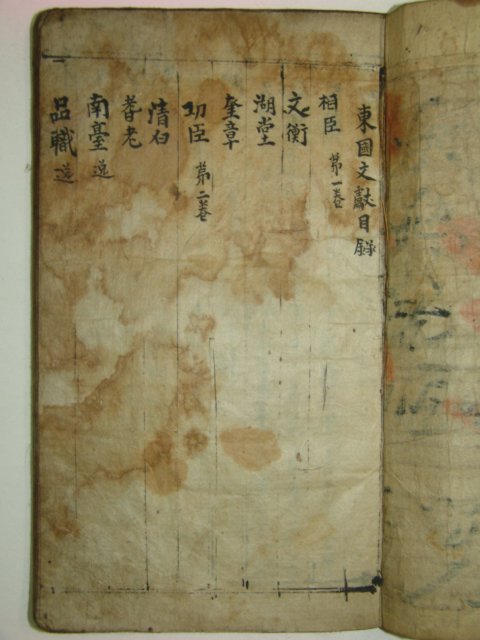 東國文獻目錄
相臣 第一卷
文衡
湖堂
奎章
功臣 第二卷
清白
耆老
南臺 逸
品職